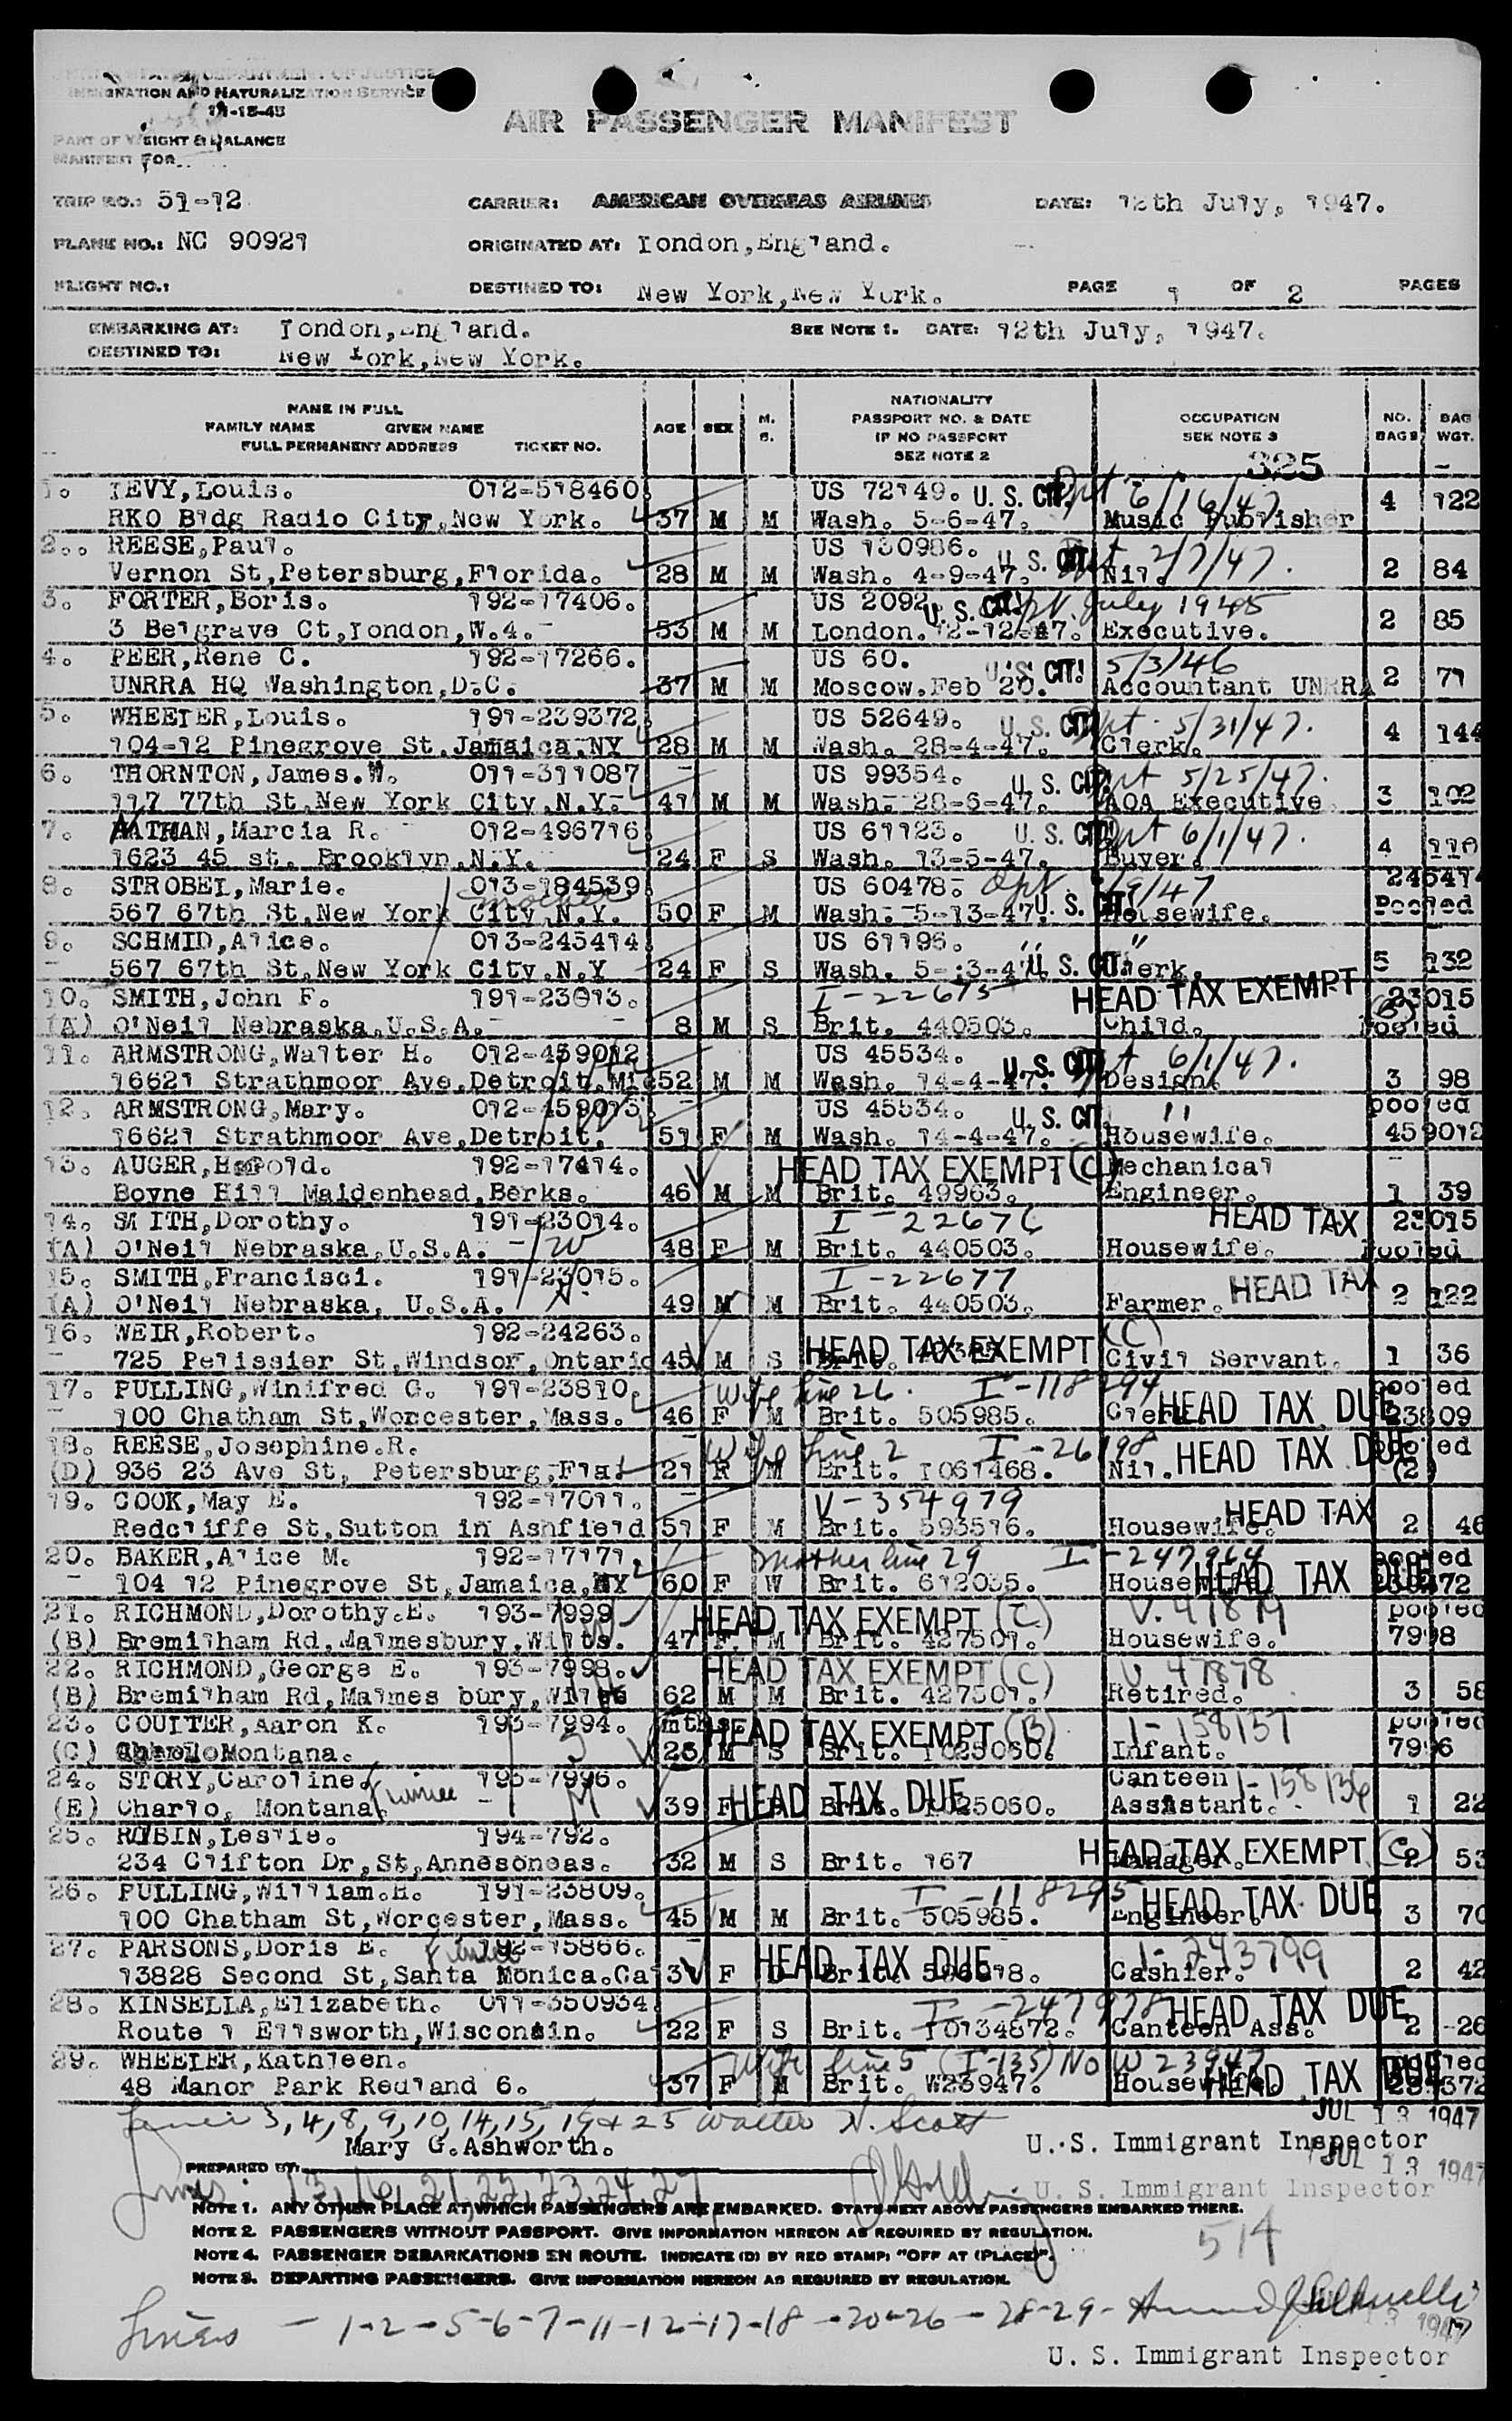 DEPARTMENT OF JUSTICE
IMMIGRATION AND NATURALIZATION SERVICE
PART OF WEIGHT & BALANCE
MANIFEST FOR
AIR PASSENGER MANIFEST
TRIP NO.: 51-12 CARRIER: AMERICAN OVERSEAS AIRLINES DATE: 12th July, 1947.
PLANE NO.: NC 90921 ORIGINATED AT: London,England.
FLIGHT NO.: DESTINED TO: New York,New York. PAGE 1 OF 2 PAGES
EMBARKING AT: London,England. SEE NOTE 1. DATE: 12th July, 1947.
DESTINED TO: New York,New York.
NAME IN FULL
FAMILY NAME GIVEN NAME
FULL PERMANENT ADDRESS TICKET NO.
AGE SEX M. S.
NATIONALITY
PASSPORT NO. & DATE
IF NO PASSPORT
SEE NOTE 2
OCCUPATION
SEE NOTE 3
NO. BAGS BAG WGT.
325
1. LEVY,Louis. 012-518460. US 72149. U. S. CIT. 6/16/47
RKO Bldg Radio City,New York. 37 M M Wash. 5-6-47. Music Publisher 4 122
2. REESE,Paul. US 130986. U. S. CIT. 2/7/47.
Vernon St,Petersburg,Florida. 28 M M Wash. 4-9-47. Nil. 2 84
3. FORTER,Boris. 192-17406. US 2092. U. S. CIT! July 1945
3 Belgrave Ct,London,W.4. 53 M M London. Executive. 2 85
4. PEER,Rene C. 192-17266. US 60. U.S. CIT! 5/3/46
UNRRA HQ Washington,D.C. 37 M M Moscow.Feb 20. Accountant UNRRA 2 71
5. WHEELER,Louis. 191-239372. US 52649. U. S. CIT! 5/31/47.
104-12 Pinegrove St.Jamaica,NY 28 M M Wash. 28-4-47. Clerk. 4 144
6. THORNTON,James.W. 011-311087 US 99354. U. S. CIT! 5/25/47.
117 77th St,New York City,N.Y. 41 M M Wash. 28-5-47. AOA Executive 3 102
7. NATHAN,Marcia R. 012-496716. US 61123. U. S. CIT! 6/1/47.
1623 45 st. Brooklyn,N.Y. 24 F S Wash. 13-5-47. Buyer. 4 110
8. STROBEL,Marie. 013-184539. mother US 60478. 245414
567 67th St,New York City,N.Y. 50 F M Wash. 5-13-47. U. S. CIT! Housewife. Pooled
9. SCHMID,Alice. 013-245414. US 61196. " "
567 67th St,New York City,N.Y 24 F S Wash. U. S. CIT. Clerk. 5 132
10. SMITH,John F. 191-23013. I-22675 HEAD TAX EXEMPT (B) 23015
(A) O'Neil Nebraska,U.S.A. 8 M S Brit. 440503. Child. Pooled
11. ARMSTRONG,Walter H. 012-459012 US 45534. U. S. CIT! 6/1/47.
16621 Strathmoor Ave,Detroit,Mic 52 M M Wash. 14-4-47. Design. 3 98
12. ARMSTRONG,Mary. 012-459013. US 45534. U. S. CIT. " pooled
16621 Strathmoor Ave,Detroit. 51 F M Wash. 14-4-47. Housewife. 459012
13. AUGER,Harold. 192-17414. HEAD TAX EXEMPT (C) Mechanical
Boyne Hill Maidenhead,Berks. 46 M M Brit. 49963. Engineer. 1 39
14. SMITH,Dorothy. 191-23014. I-22676 HEAD TAX 23015
(A) O'Neil Nebraska,U.S.A. 48 F M Brit. 440503. Housewife. Pooled
15. SMITH,Francisci. 191-23015. I-22677 HEAD TAX
(A) O'Neil Nebraska, U.S.A. 49 M M Brit. 440503. Farmer. 2 122
16. WEIR,Robert. 192-24263. HEAD TAX EXEMPT (C)
725 Pelissier St,Windsor,Ontario 45 M S Civil Servant. 1 36
17. PULLING,Winifred G. 191-23810. Wife line 26. I-118294 pooled
100 Chatham St,Worcester,Mass. 46 F M Brit. 505985. Clerk. HEAD TAX DUE 23809
18. REESE,Josephine.R. Wife line 2 I-26198 HEAD TAX DUE pooled
(D) 936 23 Ave St, Petersburg,Fla. 21 F M Brit. L061468. Nil. (2)
19. COOK,May E. 192-17011. V-354979 HEAD TAX
Redcliffe St,Sutton in Ashfield 51 F M Brit. 593516. Housewife. 2 46
20. BAKER,Alice M. 192-17171. mother line 29 I-247964 pooled
104 12 Pinegrove St,Jamaica,NY 60 F W Brit. 612035. Housewife. HEAD TAX DUE 239372
21. RICHMOND,Dorothy.E. 193-7999 HEAD TAX EXEMPT (C) V. 47879 pooled
(B) Bremilham Rd,Malmesbury,Wilts. 47 F. M Brit. 427501. Housewife. 7998
22. RICHMOND,George E. 193-7998. HEAD TAX EXEMPT (C) V 47878
(B) Bremilham Rd,Malmes bury,Wilts 62 M M Brit. 427501. Retired. 3 58
23. COULTER,Aaron K. 193-7994. mths HEAD TAX EXEMPT (B) I-158137 pooled
(C) Charlo Montana. 23 M S Brit. L025060. Infant. 7996
24. STORY,Caroline. fiancee 193-7996. HEAD TAX DUE Canteen I-158136
(E) Charlo, Montana. 39 F Brit. L025060. Assistant. 1 22
25. RUBIN,Leslie. 194-792. HEAD TAX EXEMPT (C)
234 Clifton Dr,St,Annesoneas. 32 M S Brit. 167 Manager. 2 53
26. PULLING,William.H. 191-23809. I-118295 HEAD TAX DUE
100 Chatham St,Worcester,Mass. 45 M M Brit. 505985. Engineer. 3 70
27. PARSONS,Doris E. fiancee 192-15866. HEAD TAX DUE I-243799
13828 Second St,Santa Monica.Ca 31 F Brit. Cashier. 2 42
28. KINSELLA,Elizabeth. 011-350934. I-247978 HEAD TAX DUE
Route 1 Ellsworth,Wisconsin. 22 F S Brit. L0134872. Canteen Ass. 2 26
29. WHEELER,Kathleen. Wife line 5 (I-135) No W 23947 pooled
48 Manor Park Redland 6. 37 F M Brit. W23947. Housewife. HEAD TAX DUE 239372
Lines 3, 4, 8, 9, 10, 14, 15, 19 & 25 Walter N. Scott JUL 13 1947
Mary G.Ashworth. U. S. Immigrant Inspector
PREPARED BY: JUL 13 1947
Lines 13, 16, 21, 22, 23, 24, 27 U. S. Immigrant Inspector
NOTE 1. ANY OTHER PLACE AT WHICH PASSENGERS ARE EMBARKED. STATE NEXT ABOVE PASSENGERS EMBARKED THERE.
NOTE 2. PASSENGERS WITHOUT PASSPORT. GIVE INFORMATION HEREON AS REQUIRED BY REGULATION.
514
NOTE 4. PASSENGER DEBARKATIONS EN ROUTE. INDICATE (D) BY RED STAMP: "OFF AT (PLACE)".
NOTE 3. DEPARTING PASSENGERS. GIVE INFORMATION HEREON AS REQUIRED BY REGULATION.
Lines - 1-2-5-6-7-11-12-17-18-20-26-28-29-
U. S. Immigrant Inspector